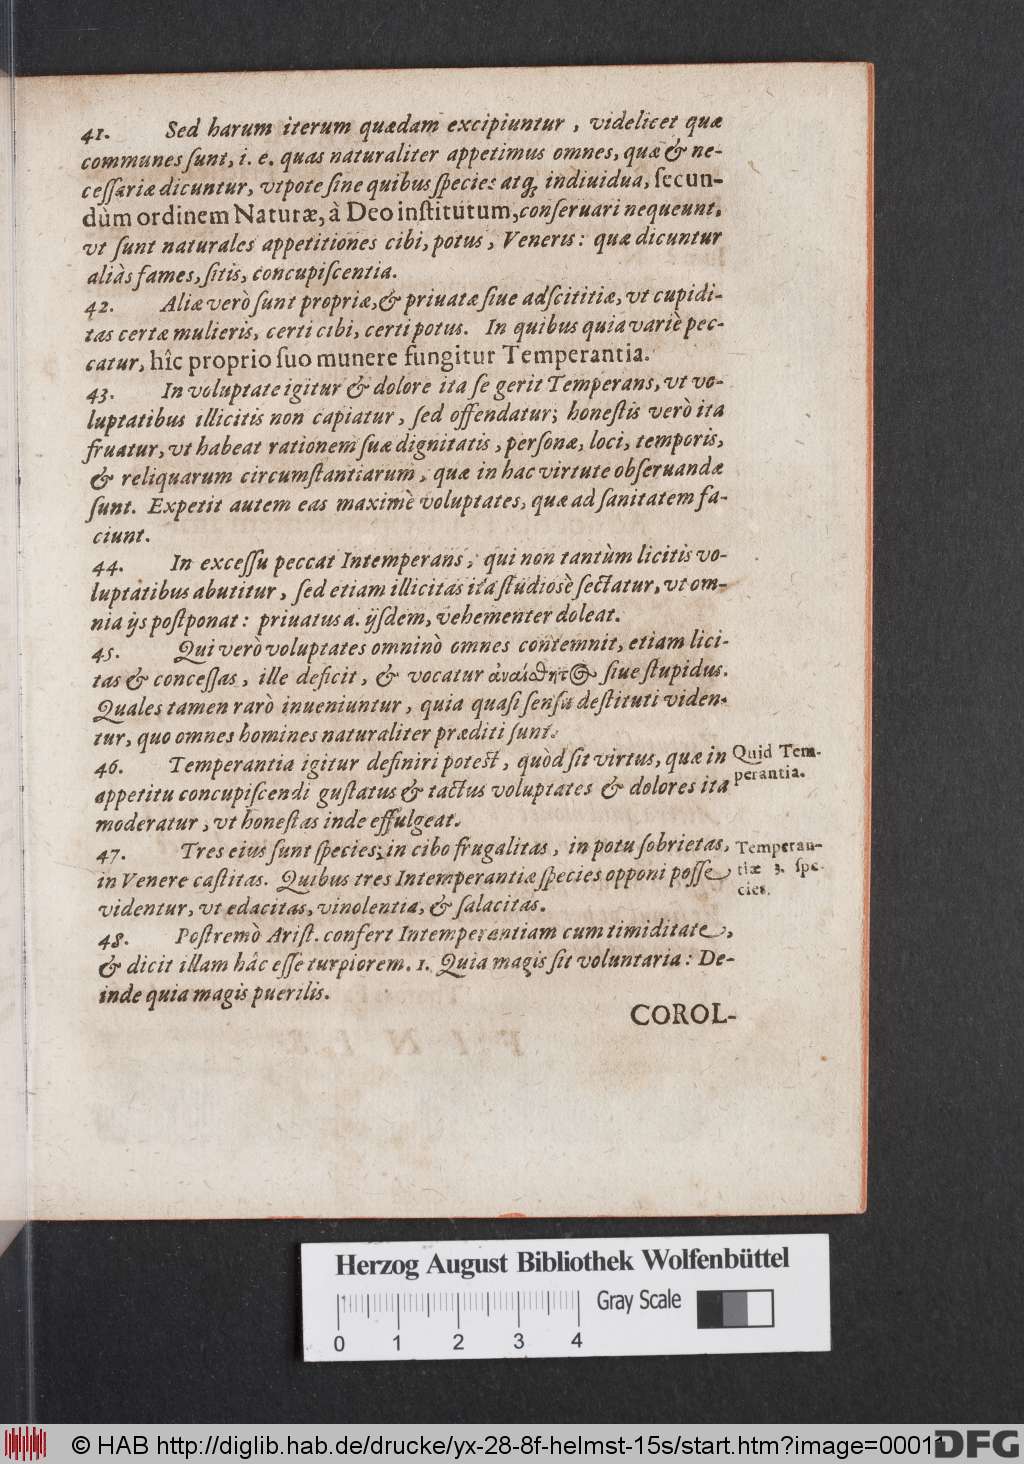 41. Sed harum iterum quædam excipiuntur, videlicet quæ
communes ſunt, i. e. quas naturaliter appetimus omnes, quæ & ne-
ceſſariæ dicuntur, vtpote ſine quibus ſpecies atq; indiuidua, ſecun-
dùm ordinem Naturæ, à Deo inſtitutum, conſeruari nequeunt,
vt ſunt naturales appetitiones cibi, potus, Veneris: quæ dicuntur
aliàs fames, ſitis, concupiſcentia.
42. Aliæ verò ſunt propriæ, & priuatæ ſiue adſcititiæ, vt cupidi-
tas certæ mulieris, certi cibi, certi potus. In quibus quia variè pec-
catur, hîc proprio ſuo munere fungitur Temperantia.
43. In voluptate igitur & dolore ita ſe gerit Temperans, vt vo-
luptatibus illicitis non capiatur, ſed offendatur; honeſtis verò ita
fruatur, vt habeat rationem ſuæ dignitatis, perſonæ, loci, temporis,
& reliquarum circumſtantiarum, quæ in hac virtute obſeruandæ
ſunt. Expetit autem eas maximè voluptates, quæ ad ſanitatem fa-
ciunt.
44. In exceſſu peccat Intemperans, qui non tantùm licitis vo-
luptatibus abutitur, ſed etiam illicitas ita ſtudiosè ſectatur, vt om-
nia ijs poſtponat: priuatus a. ijſdem, vehementer doleat.
45. Qui verò voluptates omninò omnes contemnit, etiam lici-
tas & conceſſas, ille deficit, & vocatur ἀναίσθητος ſiue ſtupidus.
Quales tamen rarò inueniuntur, quia quaſi ſenſu deſtituti viden-
tur, quo omnes homines naturaliter præditi ſunt.
46. Temperantia igitur definiri potest, quòd ſit virtus, quæ in
appetitu concupiſcendi guſtatus & tactus voluptates & dolores ita
moderatur, vt honeſtas inde effulgeat.
Quid Tem-
perantia.
47. Tres eius ſunt ſpecies; in cibo frugalitas, in potu ſobrietas,
in Venere caſtitas. Quibus tres Intemperantiæ ſpecies opponi poſſe
videntur, vt edacitas, vinolentia, & ſalacitas.
Temperan-
tiæ 3. ſpe-
cies.
48. Poſtremò Ariſt. confert Intemperantiam cum timiditate,
& dicit illam hâc eſſe turpiorem. 1. Quia magis ſit voluntaria: De-
inde quia magis puerilis.
COROL-
Herzog August Bibliothek Wolfenbüttel
Gray Scale
0 1 2 3 4
© HAB http://diglib.hab.de/drucke/yx-28-8f-helmst-15s/start.htm?image=00011
DFG